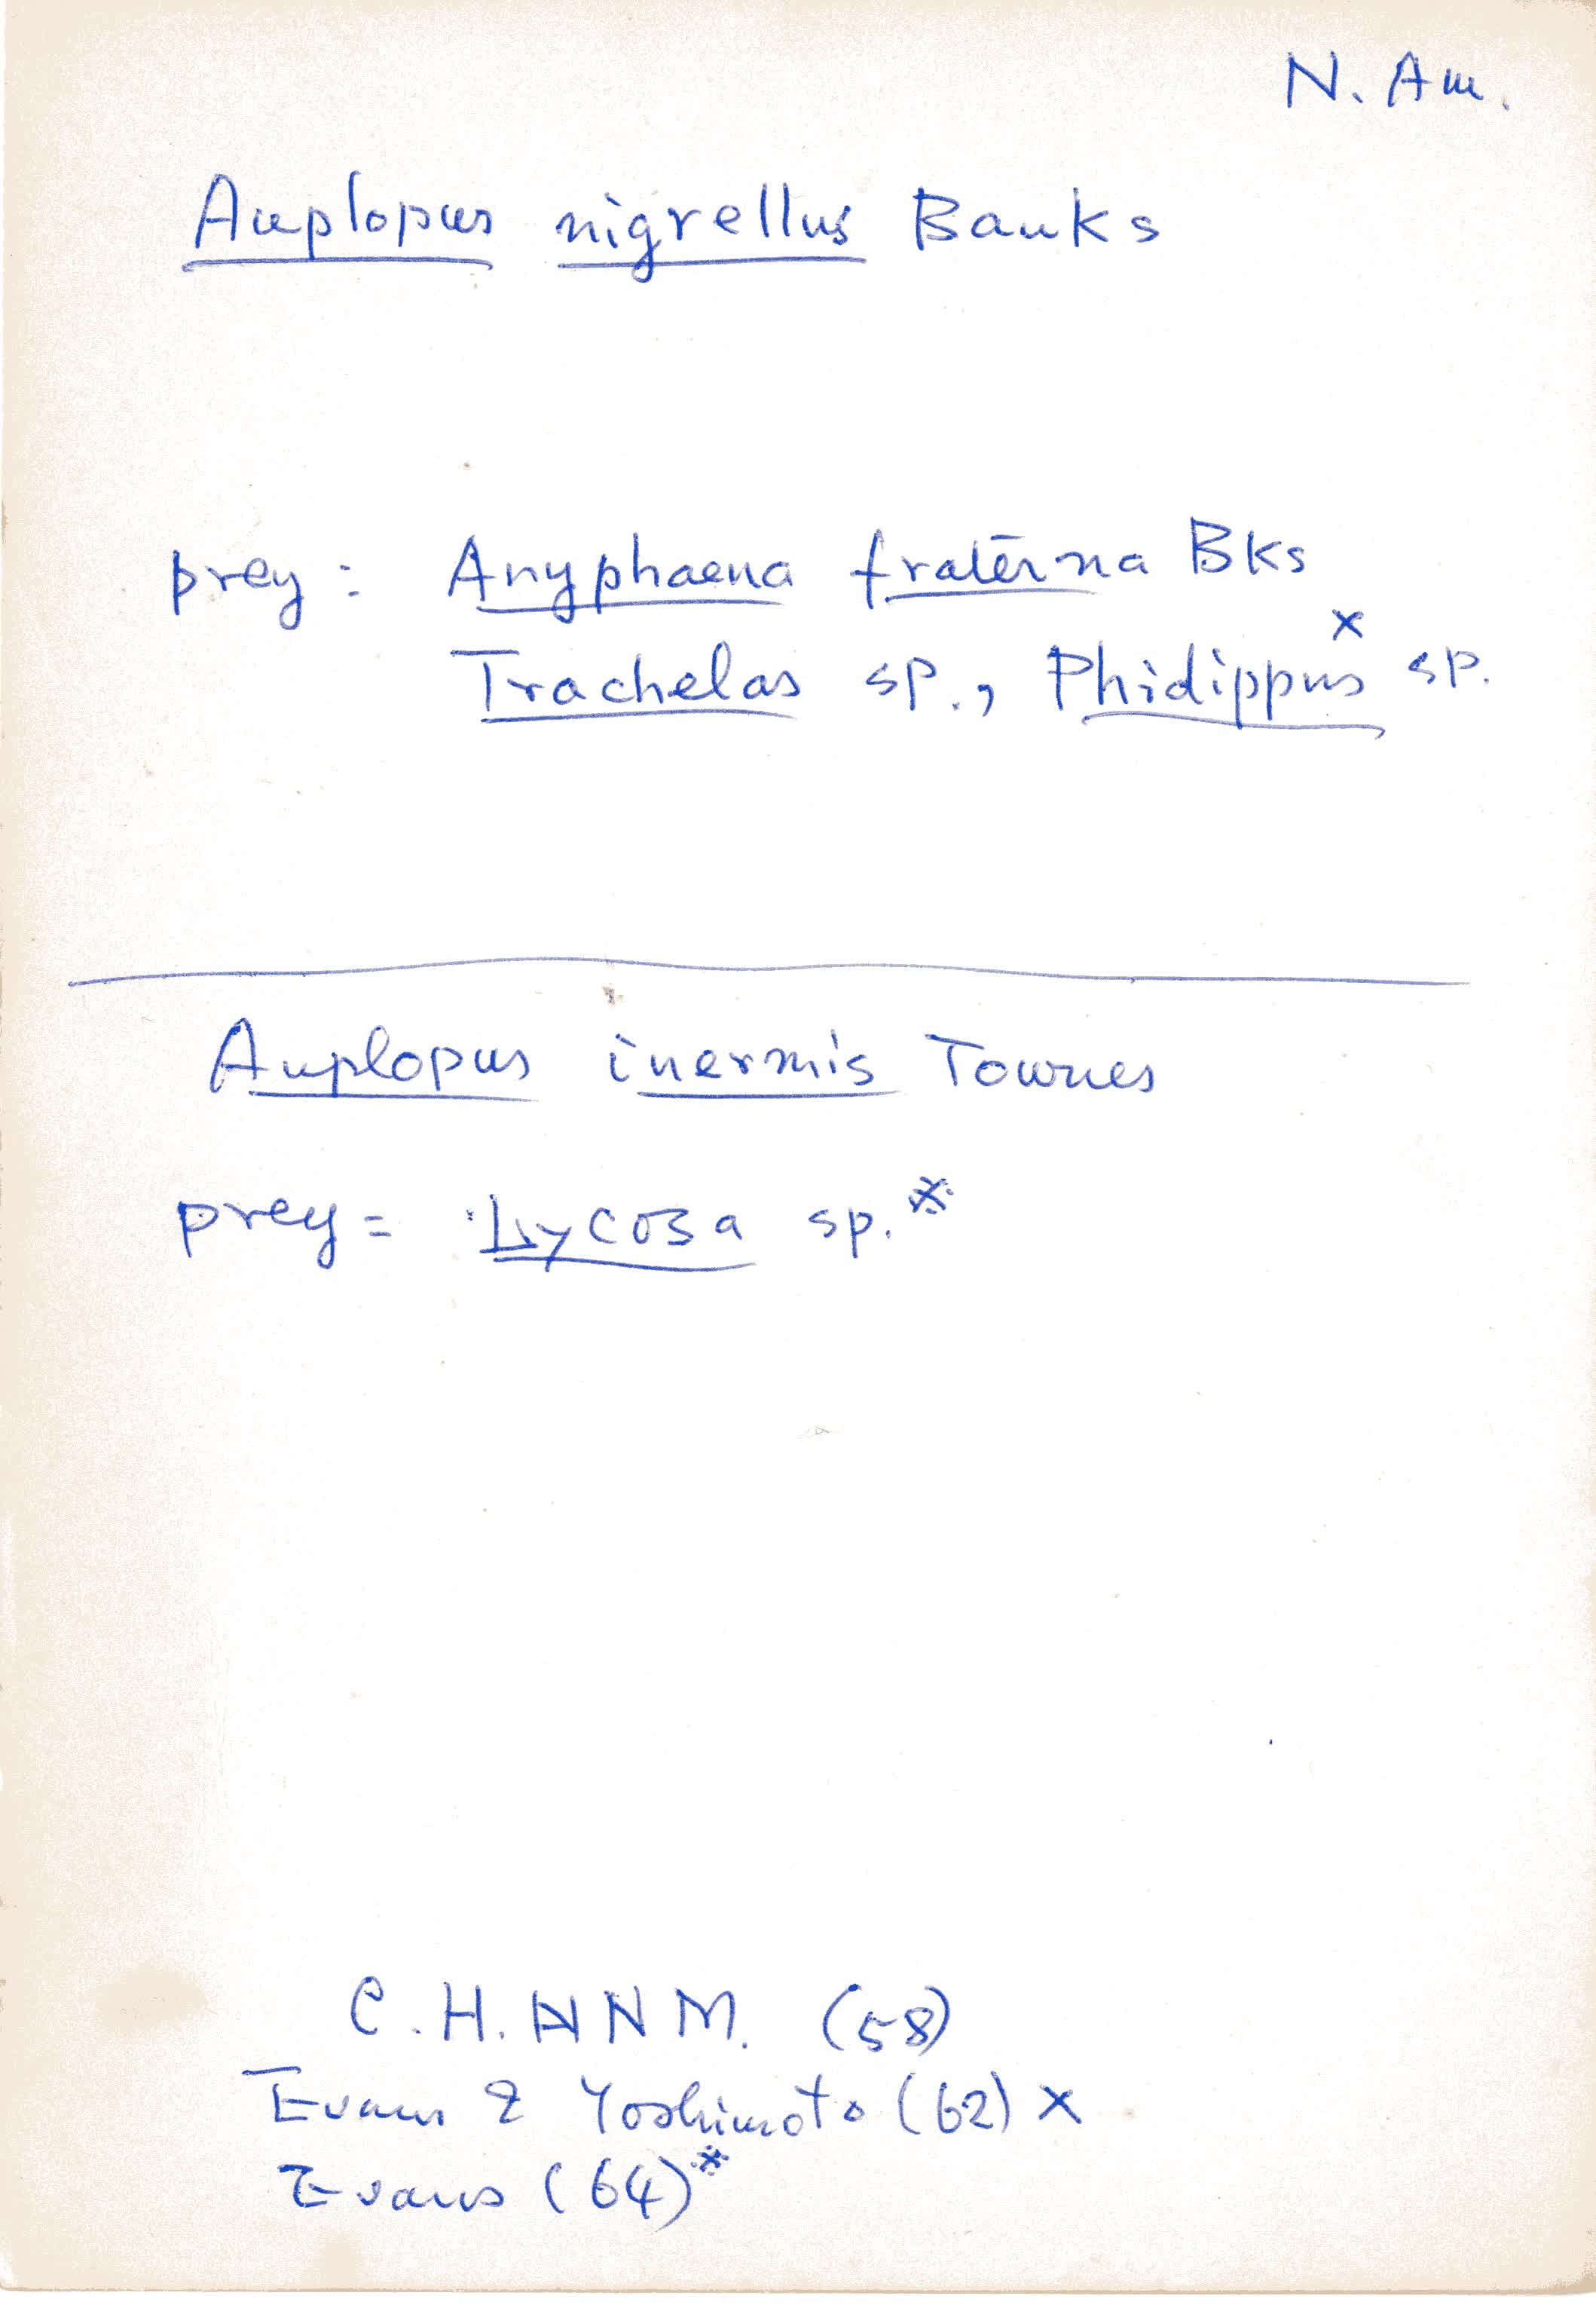 N. Am.
Auplopus nigrellus Banks
prey: Anyphaena fraterna Bks
Trachelas sp., Phidippus× sp.
Auplopus inermis Townes
prey = Lycosa sp.※
C. H. N M. (58)
Evans & Yoshimoto (62) ×
Evans (64)※